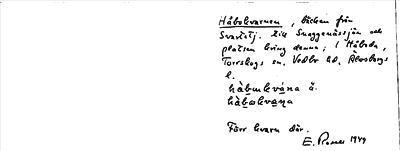 Håbokvarnen, bäcken från
Svartetj. till Snaggenässjön och
platsen kring denna; i Håbo,
Torrskogs sn. Vedbo hd. Älvsborgs
l.
hàbmkvána å.
hàbokvaṇa
Förr kvarn där.
E. Rosell 1949